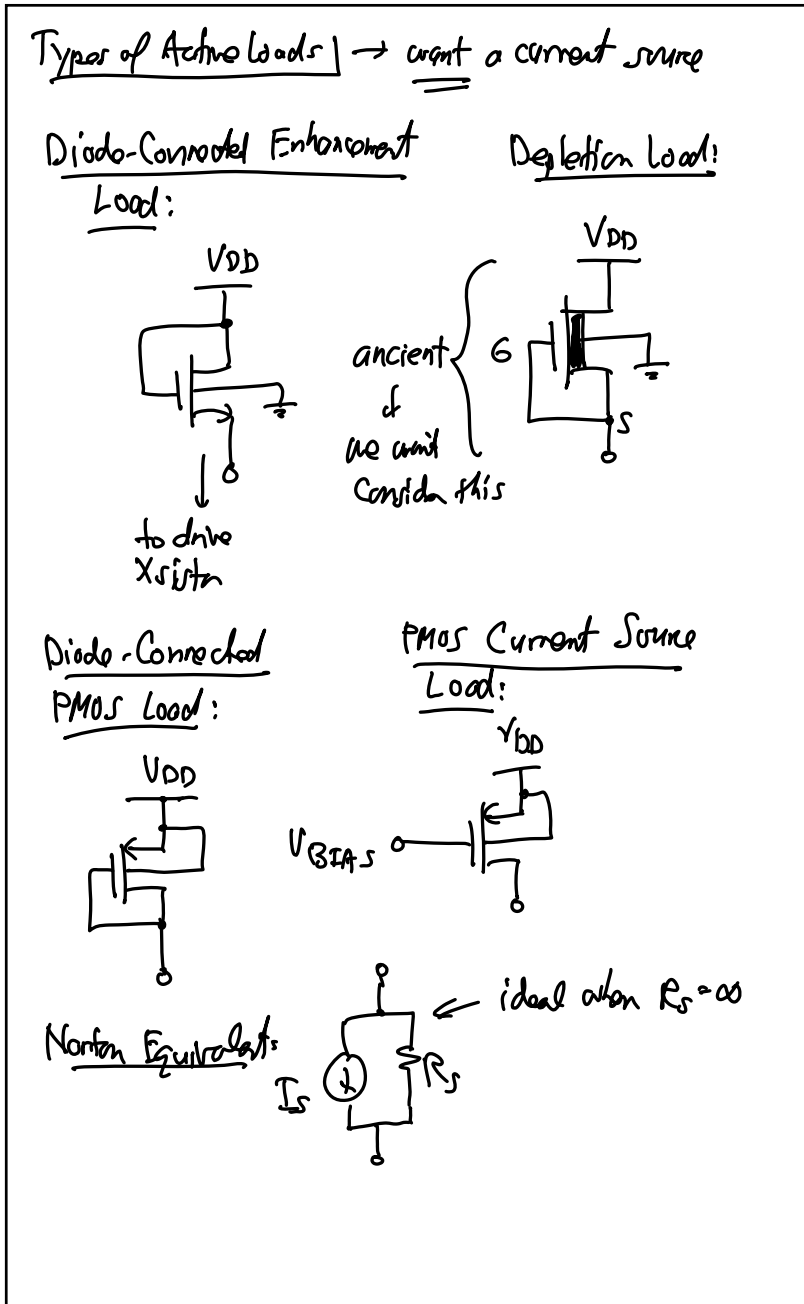 Types of Active Loads → want a current source
Diode-Connected Enhancement
Load:
Depletion Load:
VDD
to drive
Xsistor
VDD
ancient
&
we won't
consider this
G
S
Diode-Connected
PMOS Load:
VDD
PMOS Current Source
Load:
VDD
VBIAS
Norton Equivalent:
IS
RS
← ideal when RS=∞